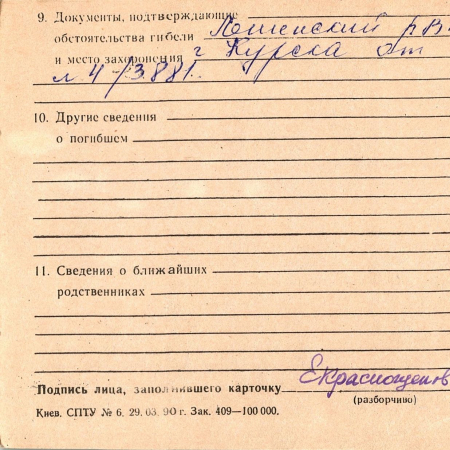 9. Документы, подтверждающие
обстоятельства гибели Ленинский РВ
и место захоронения г Курска от
л. 4 /3.881.
10. Другие сведения
о погибшем
11. Сведения о ближайших
родственниках
Подпись лица, заполнившего карточку
(разборчиво)
Киев. СПТУ № 6, 29. 03. 90 г. Зак. 409—100 000.